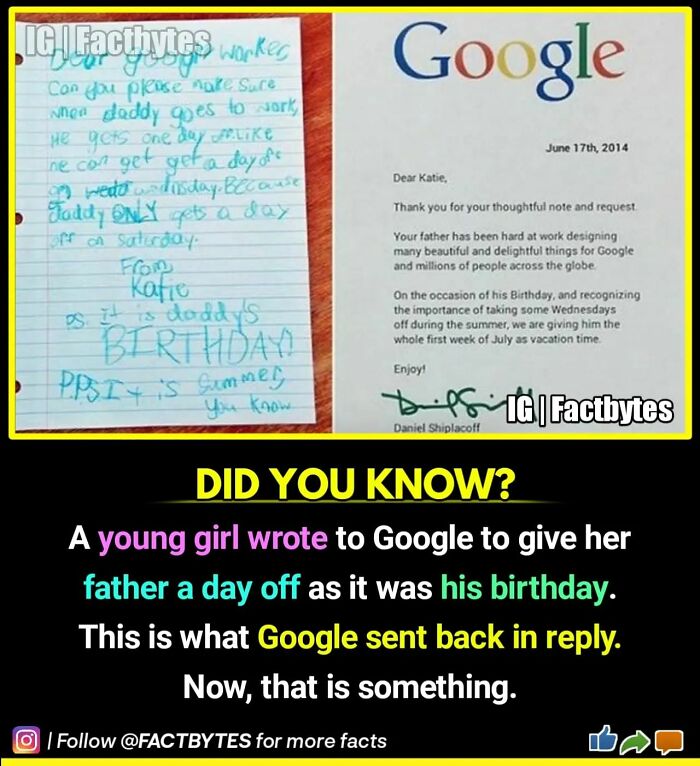 IG | Factbytes
Dear google worker
Can you please make sure
when daddy goes to work,
He gets one day off. Like
he can get get a day off
on wednesday. Because
daddy ONLY gets a day
off on Saturday.
From,
Katie
PS. It is daddy'S
BIRTHDAY!
P.P.S It is Summer,
You know
Google
June 17th, 2014
Dear Katie,
Thank you for your thoughtful note and request.
Your father has been hard at work designing
many beautiful and delightful things for Google
and millions of people across the globe.
On the occasion of his Birthday, and recognizing
the importance of taking some Wednesdays
off during the summer, we are giving him the
whole first week of July as vacation time.
Enjoy!
IG | Factbytes
Daniel Shiplacoff
DID YOU KNOW?
A young girl wrote to Google to give her
father a day off as it was his birthday.
This is what Google sent back in reply.
Now, that is something.
| Follow @FACTBYTES for more facts